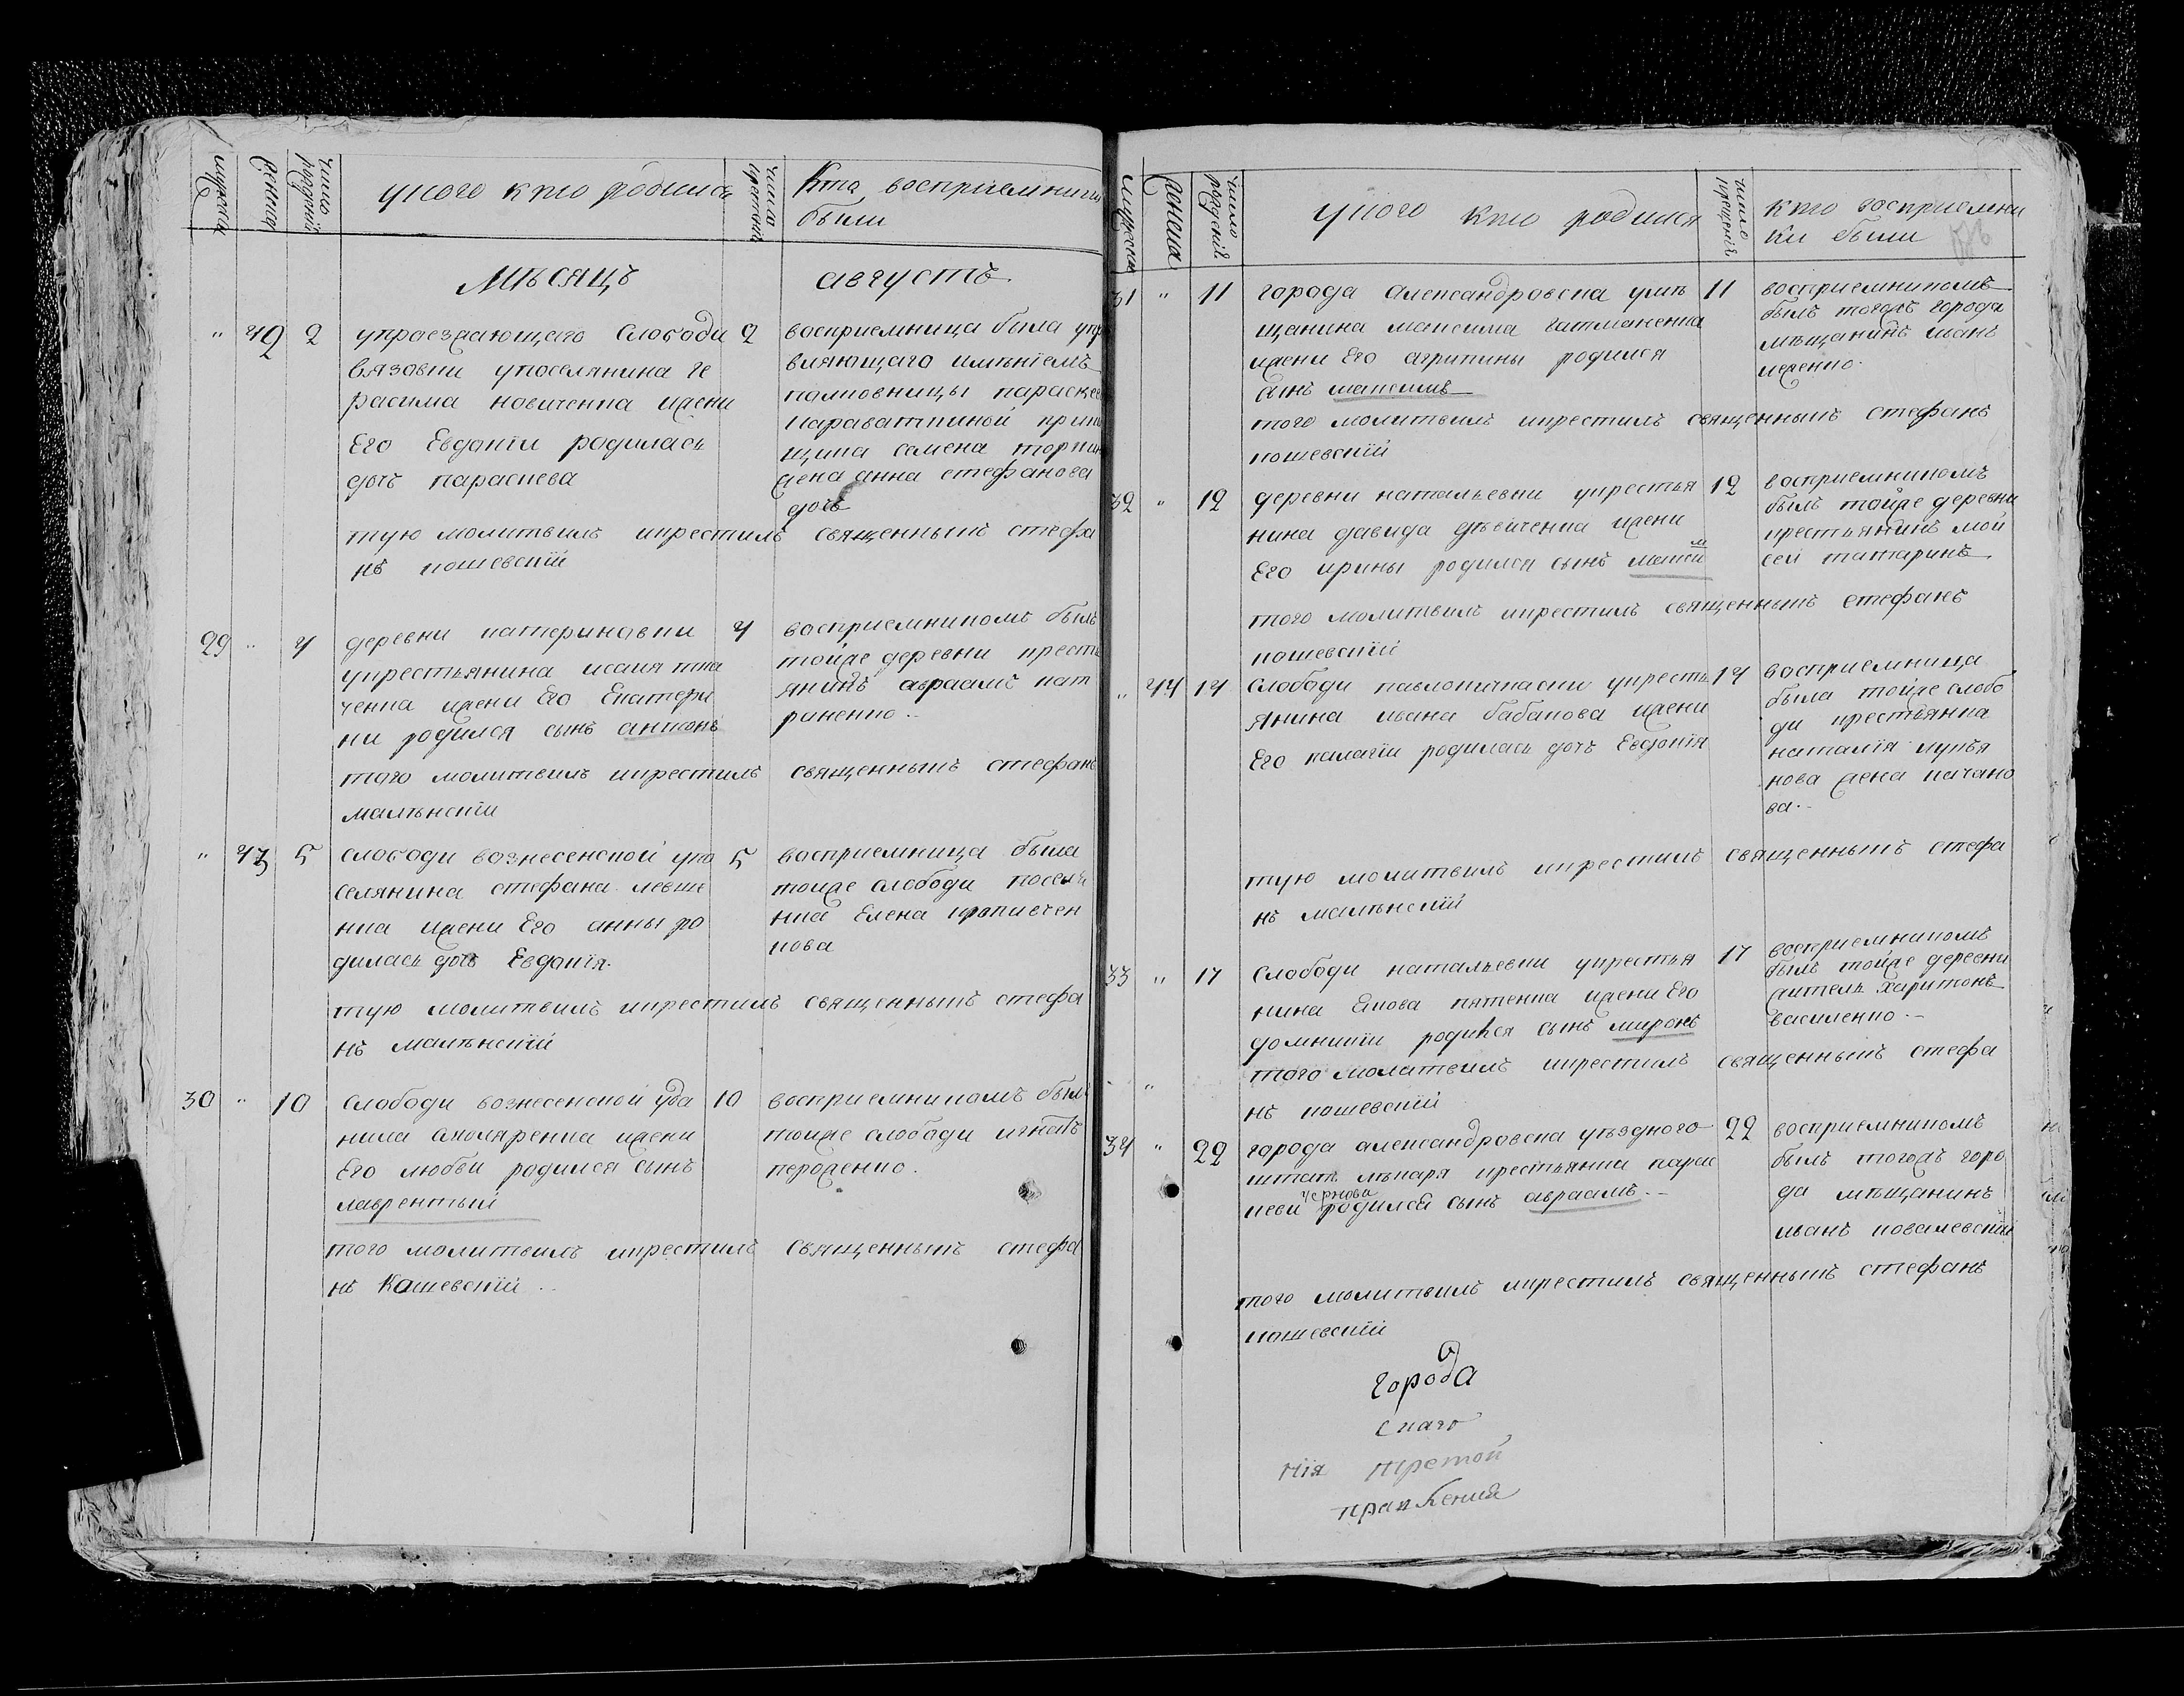 мужеска
женска
число рождений
укого кто родился
число крещений
Кто восприемники
были
Мѣсяцъ августъ
" 42 2
упраезжающего Слободи
Вязовки упоселянина ге
расима новиченка жени
Его Евдокіи родилась
дочь параскева
2
восприемница была упра
вляющаго имѣніемъ
полковницы параскев
щика самена
жена анна стефанова
дочь
тую молитвилъ икрестилъ священникъ стефа
нъ кошевскій
29 " 4
деревни катериновки
укрестьянина исаия тка
ченка жени Его Екатери
ни родился сынъ антонъ
4
восприемникомъ былъ
тойже деревни кресть
янинъ авраамъ кат
риненко.
того молитвилъ икрестилъ священникъ стефанъ
малѣнскій
" 43 5
слободи вознесенской упо
селянина стефана левше
нка жени Его анны ро
дилась дочь Евдокія.
5
восприемница была
тойже слободи поселя
нка Елена
кова
тую молитвилъ икрестилъ священникъ стефа
нъ малѣнскій
30 " 10
слободи вознесенской уда
нила столяренка жени
Его любви родился сынъ
лаврентый
10
восприемникомъ былъ
тойже слободи игнатъ
того молитвилъ икрестилъ священникъ стефа
нъ Кошевскій
мужеска
женска
число рождений
укого кто родился
число крещений
кто восприемни
ки были
31 " 11
города александровска умѣ
щанина максима гатмоненка
жени Его агрипины родился
синъ максимъ
11
восприемникомъ
былъ тогожъ города
мѣщанинъ иванъ
того молитвилъ икрестилъ священникъ стефанъ
кошевскій
32 " 12
деревни натальевки укрестья
нина давида дѣвиченка жени
Его ирины родился сынъ матвей
12
восприемникомъ
былъ тойже деревни
крестьянинъ мой
сей татаринъ
того молитвилъ икрестилъ священникъ стефанъ
кошевскій
" 44 14
слободи павлокичкаски укресть
янина ивана бабакова жени
Его палагіи родилась дочь Евдокія
14
восприемница
была тойже слобо
ди крестьянка
наталія лукья
нова жена качано
ва.
тую молитвилъ икрестилъ священникъ стефа
нъ малѣнскій
33 " 17
слободи натальевки укрестья
нина Якова пятенка жени Его
домникіи родился сынъ миронъ
17
восприемникомъ
былъ тойже деревни
житель Харитонъ
василенко.
того молитвилъ икрестилъ священникъ стефа
"
нъ кошевскій
34 " 22
города александровска уѣздного
штатъ лѣкаря крестьянка парас
чернова
кеви родился сынъ авраамъ.
22
восприемникомъ
былъ тогожъ горо
да мѣщанинъ
иванъ
того молитвилъ икрестилъ священникъ стефанъ
кошевскій
города
скаго
нія третой